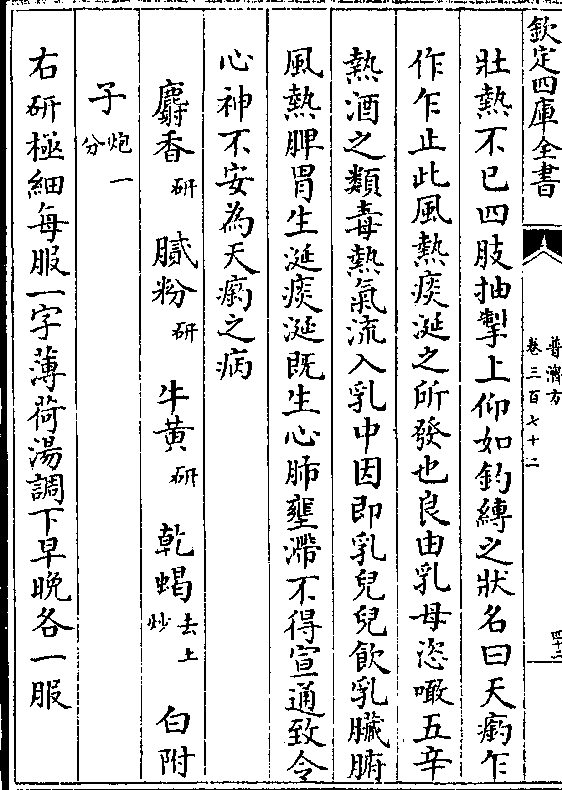 欽定四庫全書
普濟方
卷三百七十二
四十二
壯熱不已四肢抽掣上仰如釣縛之狀名曰天瘹乍
作乍止此風熱痰涎之所發也良由乳母恣噉五辛
熱酒之類毒熱氣流入乳中因即乳兒兒飲乳臟腑
風熱脾胃生涎痰涎既生心肺壅滯不得宣通致令
心神不安為天瘹之病
麝香研 膩粉研 牛黄研 乾蝎去上炒 白附
子炮一分
右研極細每服一字薄荷湯調下早晚各一服